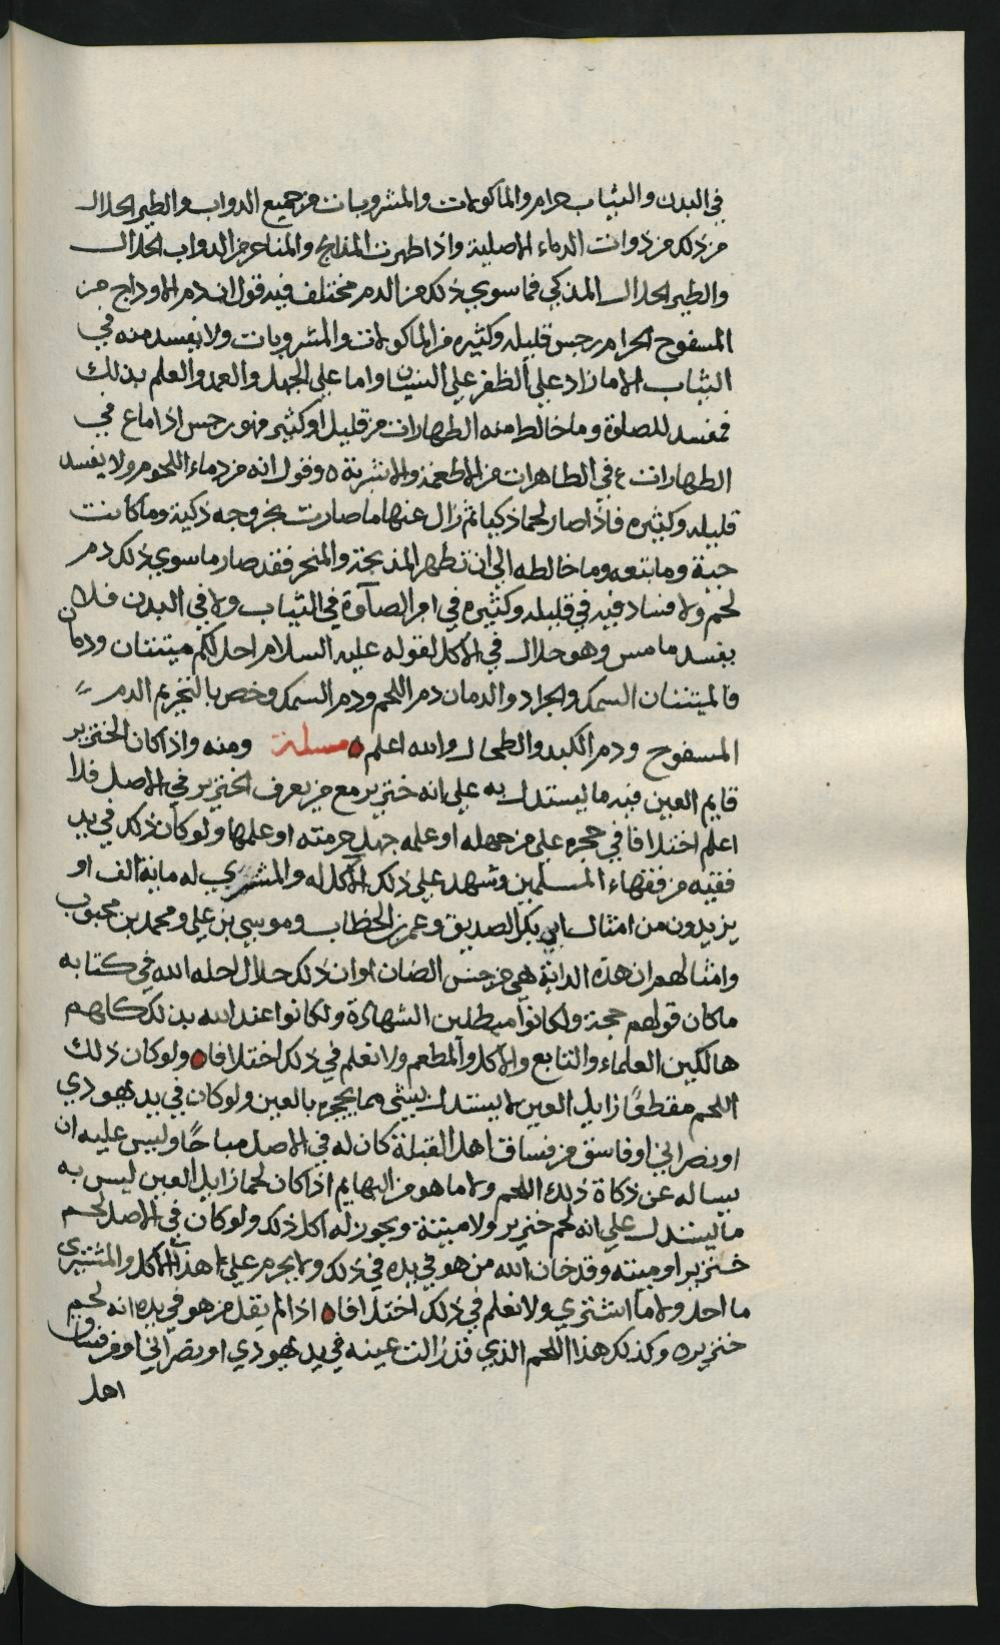 في البدن والثياب حرام والماكولات والمشروبات من جميع الدواب والطير الحلال
من ذلك من ذوات الدماء الاصلية واذا طهرت المذابح والمناحر من الدواب الحلال
والطير الحلال المذكي فما سوي ذلك من الدم مختلف فيه قول ان دم الاوداج من
المسفوح الحرام رجس قليله وكثيره من الماكولات والمشروبات ولا يفسد منه في
الثياب الا ما زاد علي الظفر علي النسيان واما علي الجهل والعمد والعلم بذلك
فمفسد للصلوة وما خالط منه الطهارات من قليل او كثير فهو رجس اذا ماع في
الطهارات في الطاهرات من الاطعمة والاشربة ٥ وقول انه من دماء اللحوم ولا يفسد
قليله وكثيره فاذا صار لحما ذكيا ثم زال عنها ما صارت بخروجه ذكية وما كانت
حية وما يتبعه وما خالطه الي ان تطهر المذبحة والمنحر فقد صار ما سوي ذلك دم
لحم ولا فساد فيه في قليله وكثيره في امر الصلوة في الثياب ولا في البدن فلا
يفسد ما مس وهو حلال في الاكل لقوله عليه السلام احل لكم ميتتان ودمان
فالميتتان السمك والجراد والدمان دم اللحم ودم السمك وخص بالتحريم الدم
المسفوح ودم الكبد والطحال والله اعلم ٥ مسئلة ومنه واذا كان الخنزير
قايم العين فيه ما يستدل به علي انه خنزير مع من يعرف الخنزير في الاصل فلا
اعلم اختلافا في حجره علي من جهله او علمه جهل حرمته او علمها ولو كان ذلك في يد
فقيه من فقهاء المسلمين وشهد علي ذلك الاكل له والمشتري له ماية الف او
يزيدون من امثال ابي بكر الصديق وعمر بن الخطاب وموسي بن علي ومحمد بن محبوب
وامثالهم ان هذه الدابة هي من جنس الضان او ان ذلك حلال احله الله في كتابه
ما كان قولهم حجة ولكانوا مبطلين الشهادة ولكانوا عند الله بذلك كلهم
هالكين العلماء والتابع والاكل والمطعم ولا نعلم في ذلك اختلافا ٥ ولو كان ذلك
اللحم مقطعًا زايل العين لا يستدل بشي مما يحجره بالعين ولو كان في يد يهودي
او نصراني او فاسق من فساق اهل القبلة كان له في الاصل مباحًا وليس عليه ان
يساله عن ذكاة ذلك اللحم ولا ما هو من البهايم اذا كان لحما زايل العين ليس به
ما يستدل علي انه لحم خنزير ولا ميتة ويجوز له اكل ذلك ولو كان في الاصل لحم
خنزير او ميتة وقد خان الله من هو في يده في ذلك ولا يحرم علي هذا الاكل والمشتري
ما احل ولا ما اشتري ولا نعلم في ذلك اختلافا ٥ اذا لم يقل من هو في يده انه لحم
خنزير ٥ وكذلك هذا اللحم الذي قد زالت عينه في يد يهودي او نصراني او من فساق
اهل